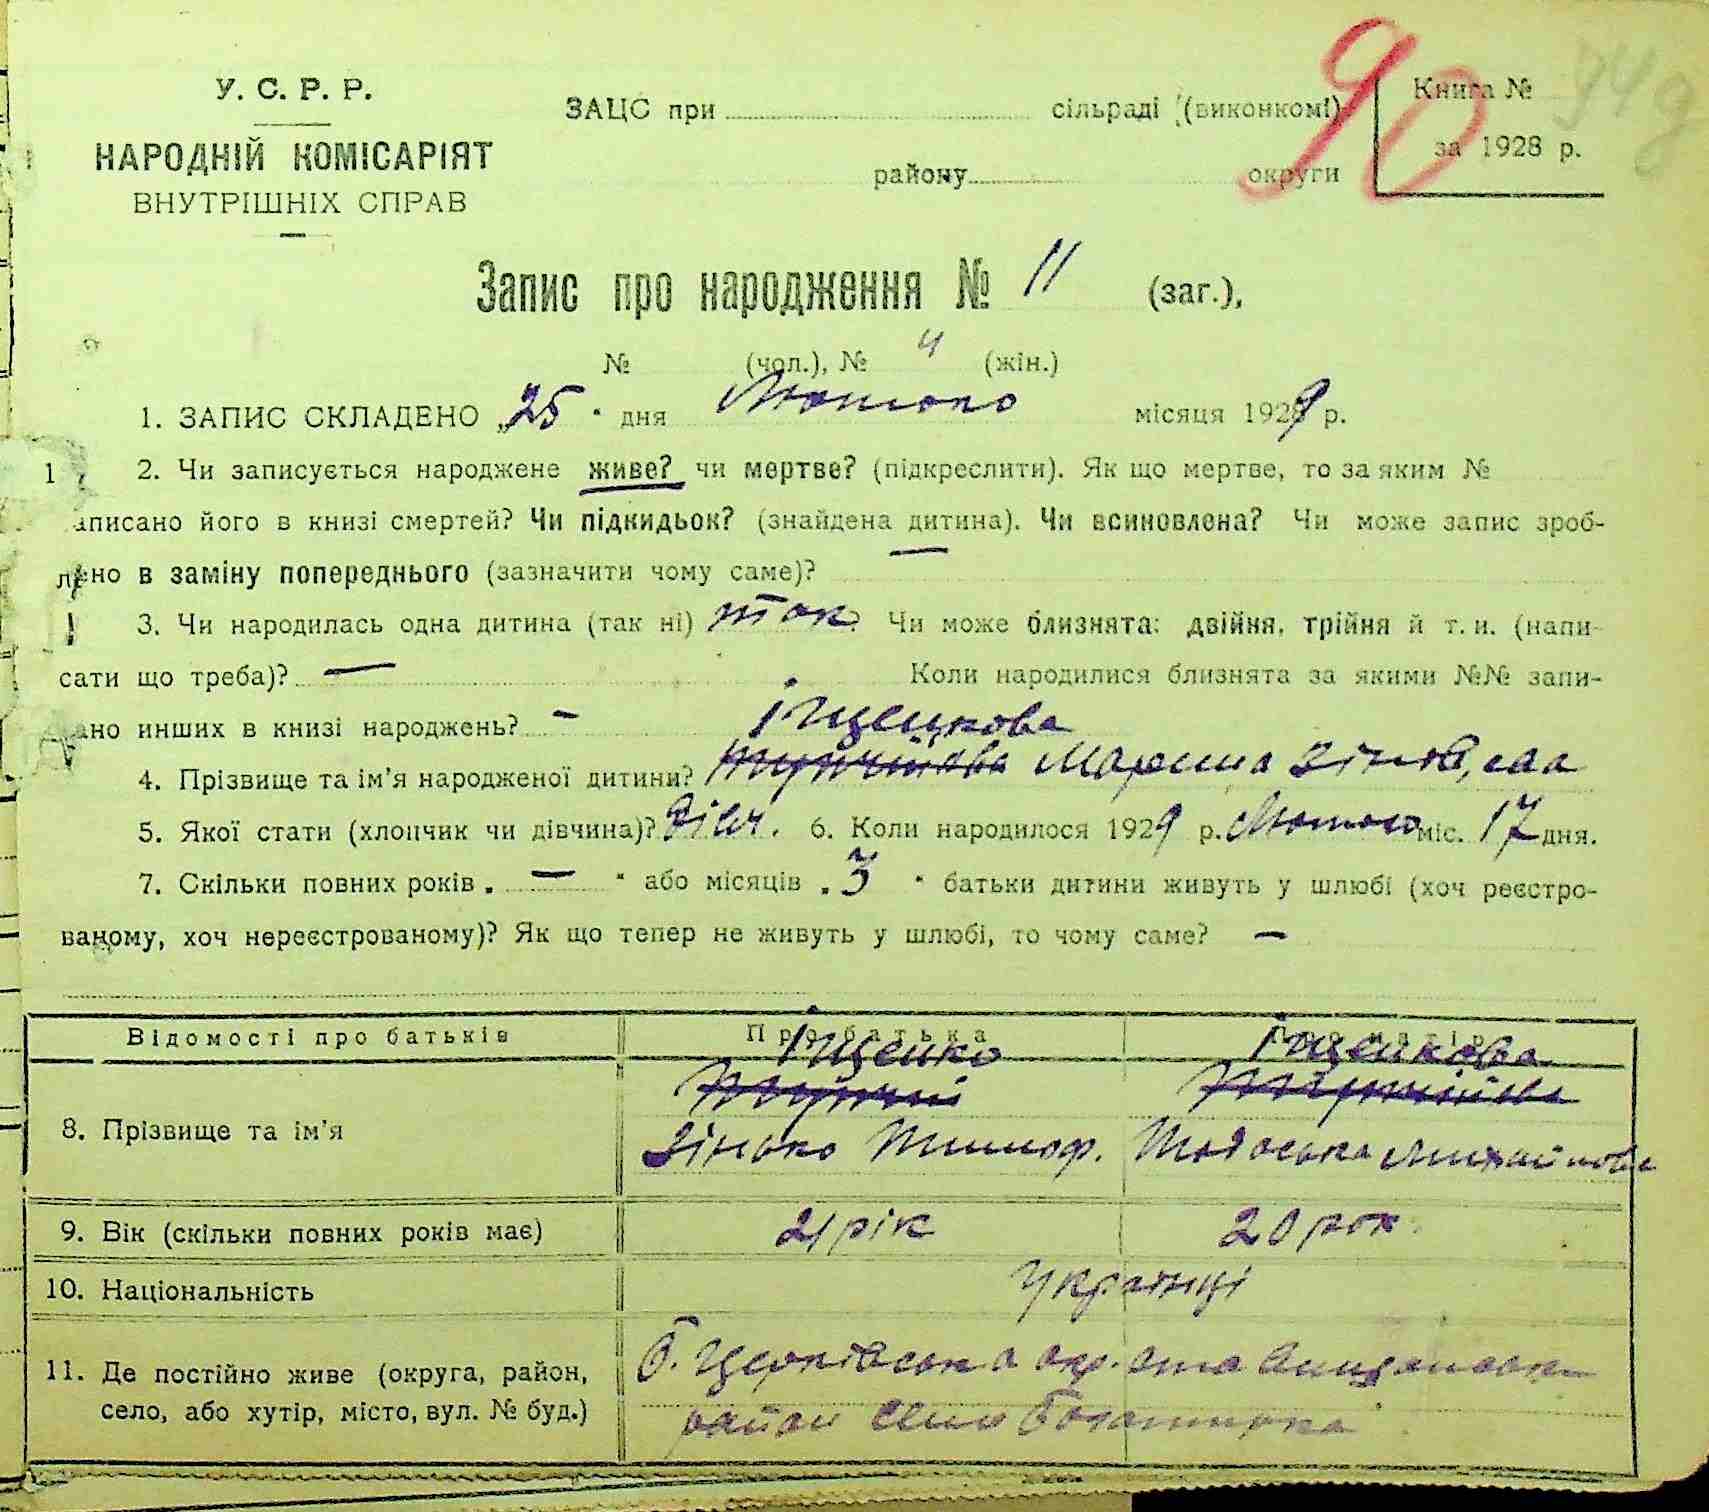 У. С. Р. Р.
НАРОДНІЙ КОМІСАРІЯТ
ВНУТРІШНІХ СПРАВ
ЗАЦС при сільраді (виконкомі)
району округи
90
Книга №
за 1928 р.
Запис про народження № 11 (заг.),
№ (чол.), № 4 (жін.)
1. ЗАПИС СКЛАДЕНО „25" дня Лютого місяця 1929 р.
1 2. Чи записується народжене живе? чи мертве? (підкреслити). Як що мертве, то за яким №
аписано його в книзі смертей? Чи підкидьок? (знайдена дитина). Чи всиновлена? Чи може запис зроб-
лено в заміну попереднього (зазначити чому саме)? —
3. Чи народилась одна дитина (так ні) так? Чи може близнята: двійня, трійня й т. и. (напи-
сати що треба)? — Коли народилися близнята за якими №№ запи-
ано инших в книзі народжень? — Іщенкова
4. Прізвище та ім'я народженої дитини? Марина Зіньк
5. Якої стати (хлопчик чи дівчина)? Дівч. 6. Коли народилося 1929 р. Лютого міс. 17 дня.
7. Скільки повних років „ — " або місяців „ 3 " батьки дитини живуть у шлюбі (хоч реєстро-
ваному, хоч нереєстрованому)? Як що тепер не живуть у шлюбі, то чому саме? —
Відомості про батьків Про батька Про матір
Іщенко Іщенкова
8. Прізвище та ім'я
Зінько Тимоф. Тодоська Михайлова
9. Вік (скільки повних років має) 21 рік 20 рок
10. Національність Українці
11. Де постійно живе (округа, район, Б. Церківська окр.
село, або хутір, місто, вул. № буд.) район село